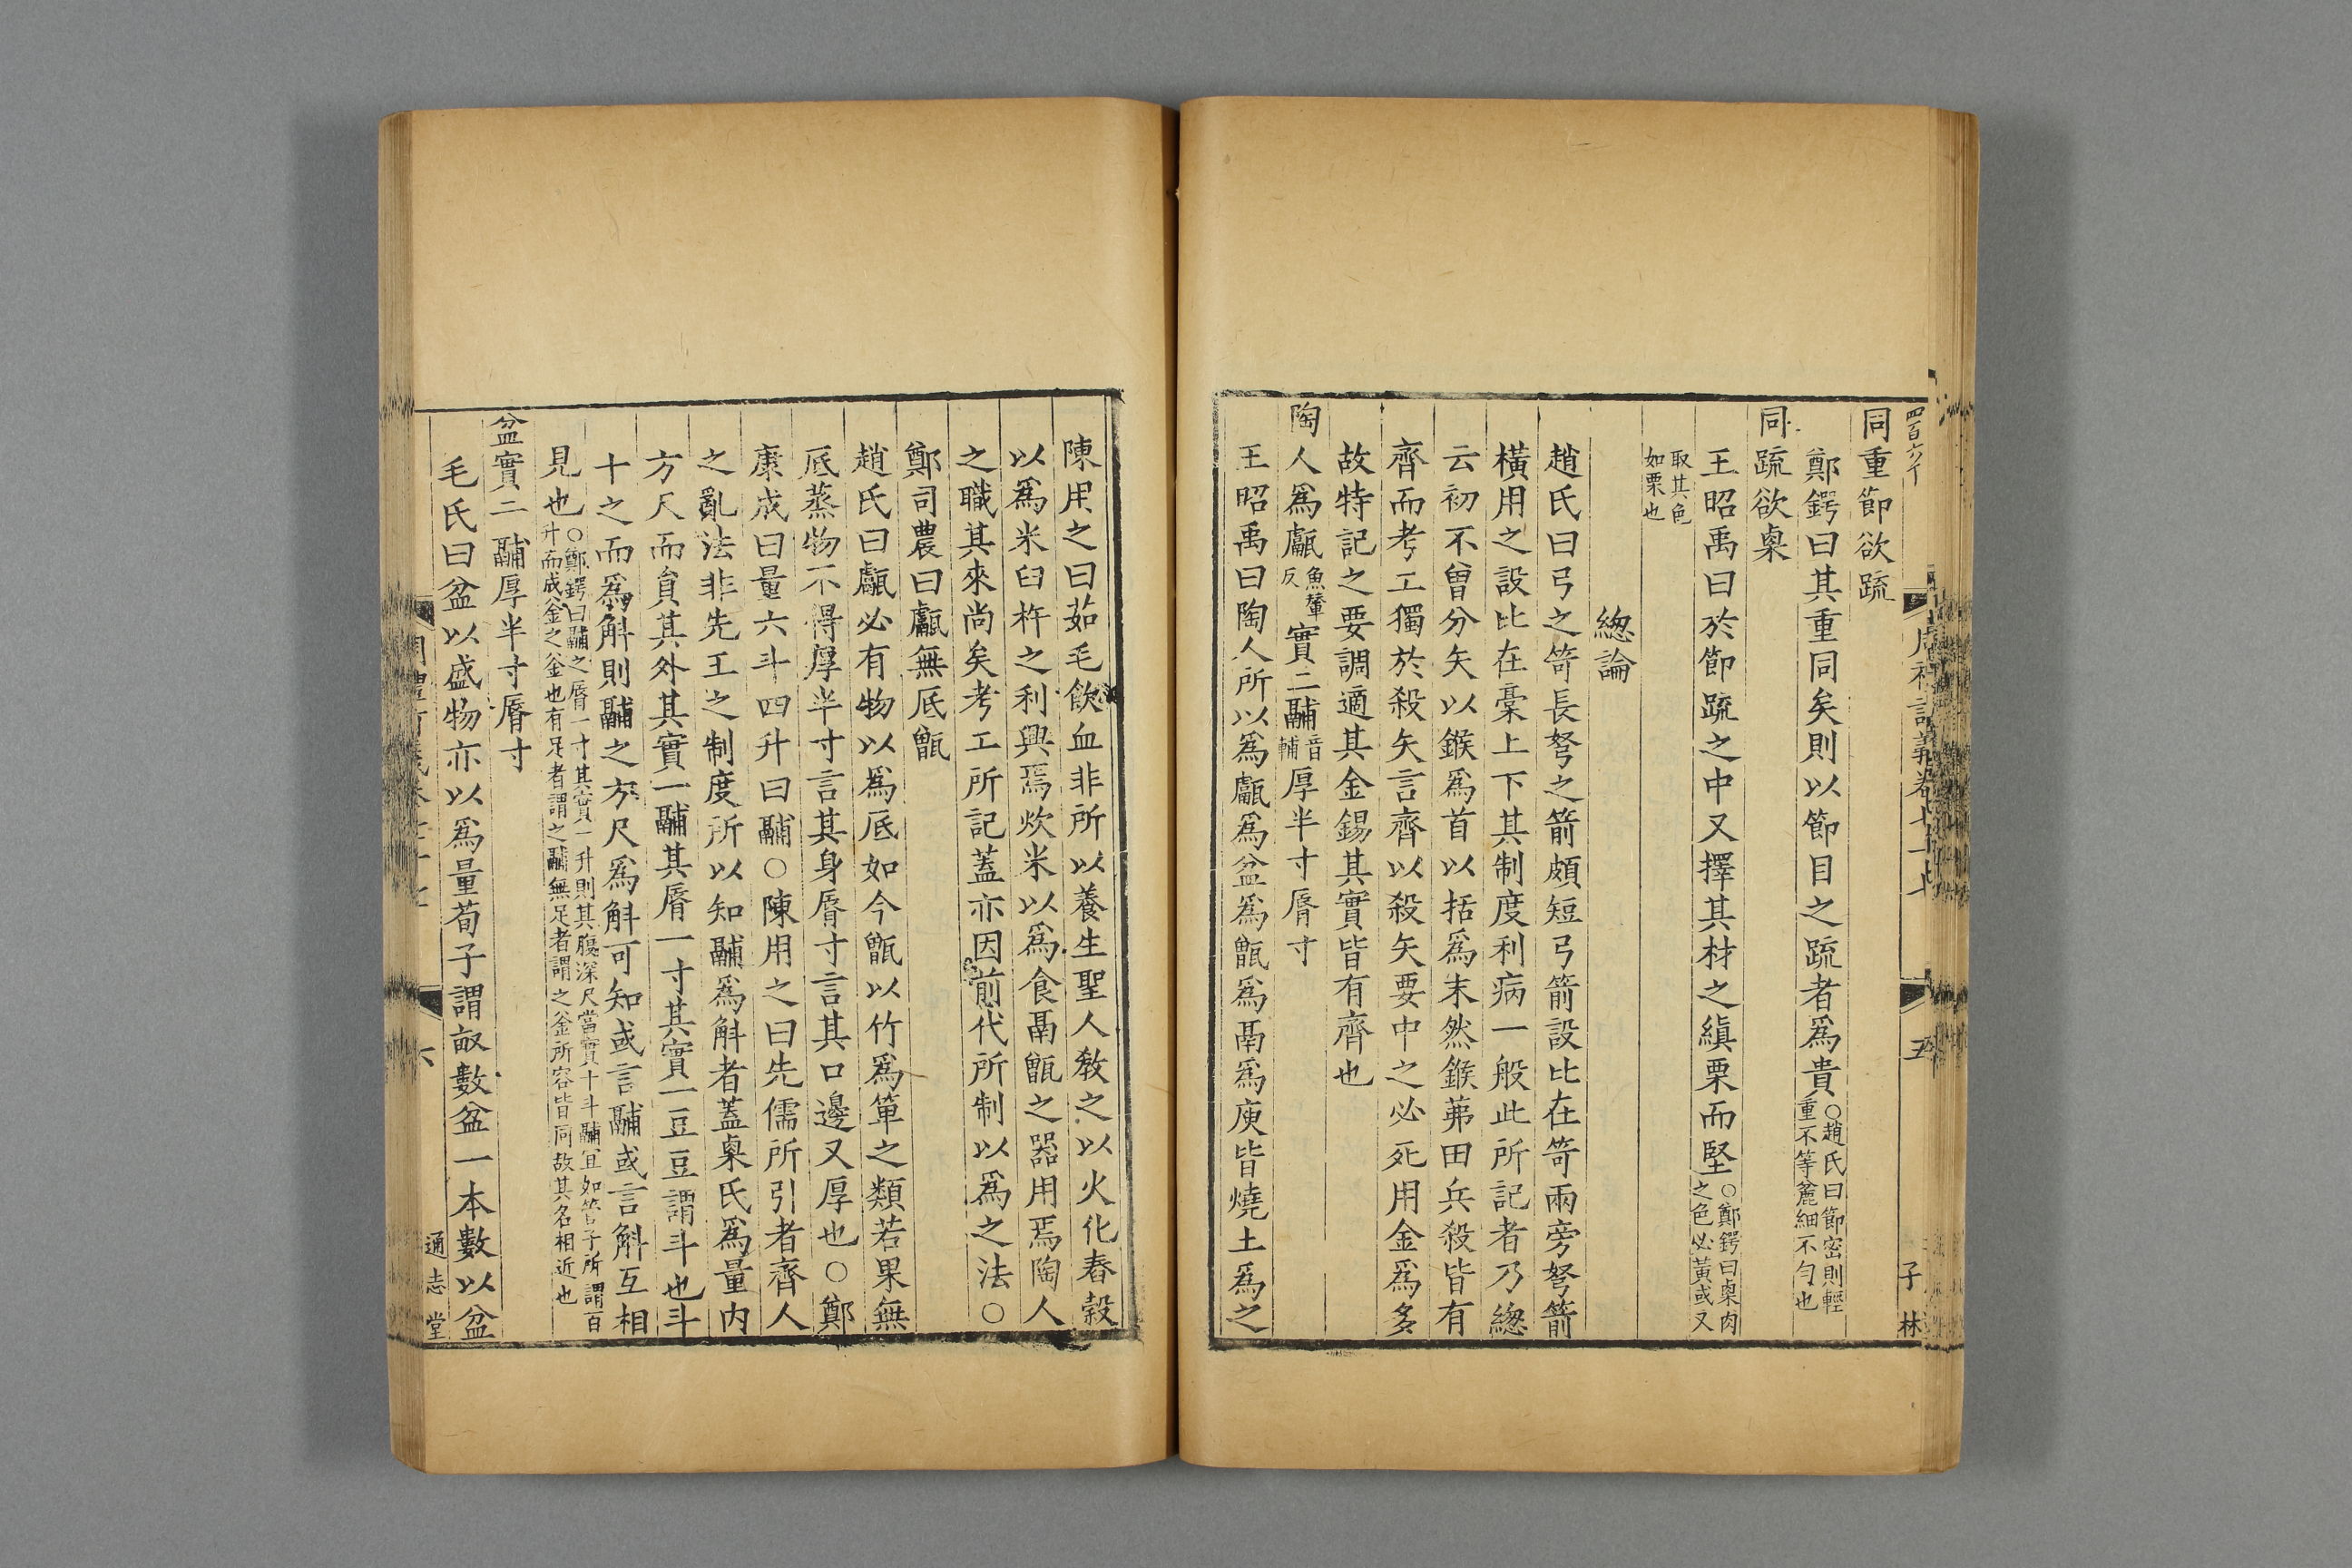 四百六个
同重節欲疏
鄭鍔曰其重同矣則以節目之疏者爲貴○趙氏曰節密則輕重不等麄細不勻也
同疏欲㮚
王昭禹曰於節疏之中又擇其材之縝栗而堅○鄭鍔曰㮚肉之色必黃或又
取其色如栗也
緫論
趙氏曰弓之笴長弩之箭頗短弓箭設比在笴兩旁弩箭
橫用之設比在槀上下其制度利病一般此所記者乃緫
云初不曾分矢以鍭爲首以括爲末然鍭茀田兵殺皆有
齊而考工獨於殺矢言齊以殺矢要中之必死用金爲多
故特記之要調適其金錫其實皆有齊也
陶人爲甗魚輦反實二鬴音輔厚半寸脣寸
王昭禹曰陶人所以爲甗爲盆爲甑爲鬲爲庾皆燒土爲之
五
子林
陳用之曰茹毛飲血非所以養生聖人教之以火化舂穀
以爲米臼杵之利興焉炊米以爲食鬲甑之器用焉陶人
之職其來尚矣考工所記蓋亦因前代所制以爲之法○
鄭司農曰甗無底甑
趙氏曰甗必有物以爲底如今甑以竹爲箄之類若果無
底蒸物不得厚半寸言其身脣寸言其口邊又厚也○鄭
康成曰量六斗四升曰鬴○陳用之曰先儒所引者齊人
之亂法非先王之制度所以知鬴爲斛者蓋㮚氏爲量內
方尺而貟其外其實一鬴其脣一寸其實一豆豆謂斗也斗
十之而爲斛則鬴之方尺爲斛可知或言鬴或言斛互相
見也○鄭鍔曰鬴之脣一寸其實一升則其腹深尺當實十斗鬴宜如管子所謂百升而成釜之釜也有足者謂之鬴無足者謂之釜所容皆同故其名相近也
盆實二鬴厚半寸脣寸
毛氏曰盆以盛物亦以爲量荀子謂畝數盆一本數以盆
六
通志堂